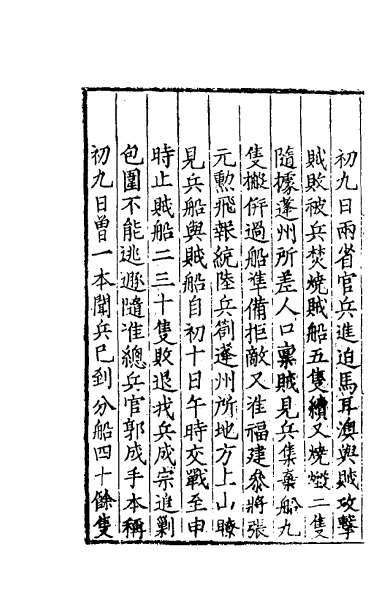 初九日兩省官兵進迫馬耳澳與賊攻擊
賊敗被兵焚燒賊船五隻續又燒燬二隻
隨據蓬州所差人口稟賊見兵集棄船九
隻搬併過船準備拒敵又准福建叅將張
元勳飛報統陸兵劄蓬州所地方上山瞭
見兵船與賊船自初十日午時交戰至申
時止賊船二三十隻敗退我兵成宗追剿
包圍不能逃遯隨准總兵官郭成手本稱
初九日曾一本聞兵已到分船四十餘隻